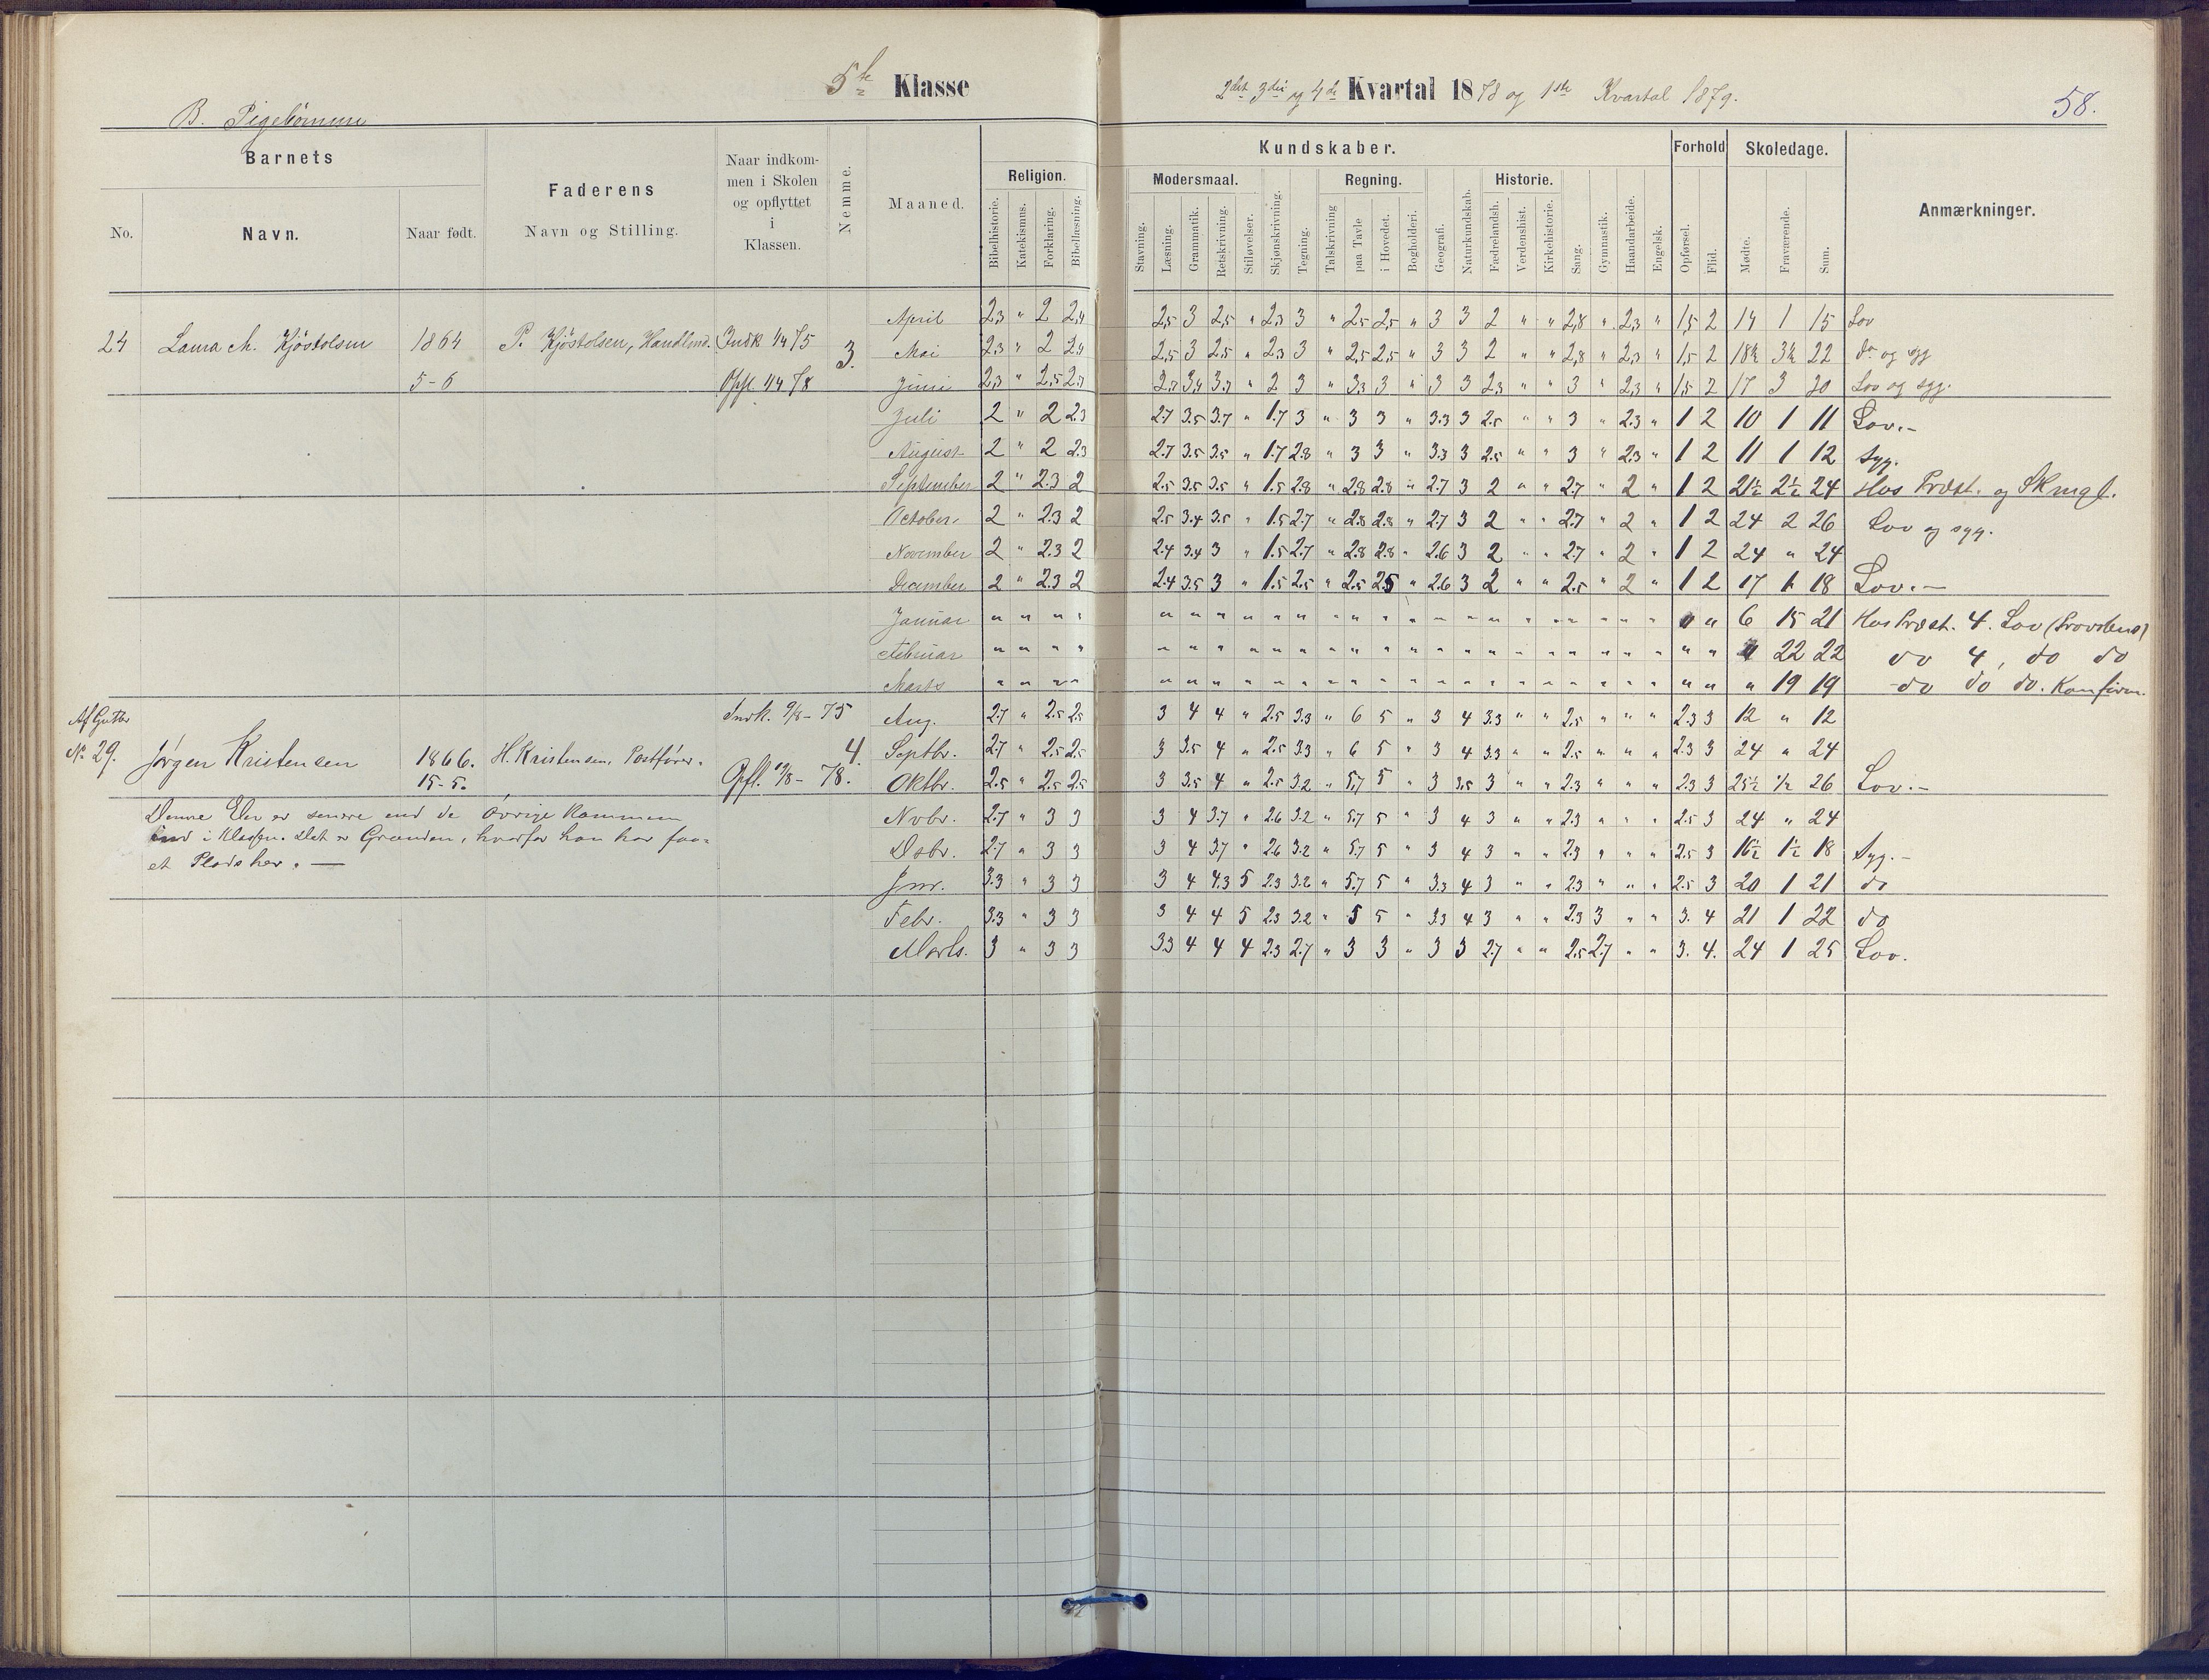 5te Klasse
2det 3die og 4de Kvartal 1878 og 1ste Kvartal 1879.
58.
B. Pigebørnene
Barnets
No.
Navn.
Naar født.
Faderens
Navn og Stilling.
Naar indkom-
men i Skolen
og opflyttet
i
Klassen.
Nemme.
Maaned.
Kundskaber.
Religion.
Bibelhistorie. Katekismus. Forklaring. Bibellæsning.
Modersmaal.
Stavning. Læsning. Grammatik. Retskrivning. Stiløvelser.
Skjønskrivning. Tegning.
Regning.
Talskrivning paa Tavle i Hovedet. Bogholderi.
Geografi. Naturkundskab.
Historie.
Fædrelandsh. Verdenshist. Kirkehistorie.
Sang. Gymnastik. Haandarbeide. Engelsk.
Forhold
Opførsel. Flid.
Skoledage.
Mødte. Fraværende. Sum.
Anmærkninger.
24 Laura M. Kjöstolsen 1864 P. Kjöstolsen, Handlmd. Indk 1/4 75 3.
5-6 Opfl. 1/4 78
April 2,3 " 2 2,4 2,5 3 2,5 " 2,3 3 " 2,5 2,5 " 3 3 2 " " 2,8 " 2,3 " 1,5 2 14 1 15 Lov
Mai 2,3 " 2 2,4 2,5 3 2,5 " 2,3 3 " 2,5 2,5 " 3 3 2 " " 2,8 " 2,3 " 1,5 2 18½ 3½ 22 do og syg
Juni 2,3 " 2,5 2,3 2,7 3,4 3,7 " 2 3 " 3,3 3 " 3 3 2,3 " " 3 " 2,3 " 1,5 2 17 3 20 Lov og syg.
Juli 2 " 2 2.3 2.7 3.5 3.7 " 1.7 3 " 3 3 " 3.3 3 2.5 " " 3 " 2.3 " 1 2 10 1 11 Lov.-
August 2 " 2 2.3 2.7 3.5 3.5 " 1.7 2.8 " 3 3 " 3.3 3 2.5 " " 3 " 2.3 " 1 2 11 1 12 Syg.
September 2 " 2.3 2 2.5 3.5 3.5 " 1.5 2.8 " 2.8 2.8 " 2.7 3 2 " " 2.7 " 2 " 1 2 21½ 2½ 24 Hos Præst. og
October 2 " 2.3 2 2.5 3.4 3.5 " 1.5 2.7 " 2.8 2.8 " 2.7 3 2 " " 2.7 " 2 " 1 2 24 2 26 Lov og syg.
November 2 " 2.3 2 2.4 3.4 3 " 1.5 2.7 " 2.8 2.8 " 2.6 3 2 " " 2.7 " 2 " 1 2 24 " 24
December 2 " 2.3 2 2.4 3.5 3 " 1.5 2.5 " 2.5 2.5 " 2.6 3 2 " " 2.5 " 2 " 1 2 17 1 18 Lov.-
Januar " " " " " " " " " " " " " " " " " " " " " " " " " 6 15 21 Hos Præst. 4. Lov
Februar " " " " " " " " " " " " " " " " " " " " " " " " " " 22 22 do 4, do do
Marts " " " " " " " " " " " " " " " " " " " " " " " " " " 19 19 do do do. Konfirm.
Af Gutter
No 29. Jörgen Kristensen 1866. H. Kristensen, Postförer. Indk. 9/8-75 4.
15-5. Opfl. 12/8-78.
Aug. 2.7 " 2.5 2.5 3 4 4 " 2.5 3.3 " 6 5 " 3 4 3.3 " " 2.5 " " " 2.3 3 12 " 12
Septbr. 2.7 " 2.5 2.5 3 3.5 4 " 2.5 3.3 " 6 5 " 3 4 3.3 " " 2.5 " " " 2.3 3 24 " 24
Oktbr. 2.5 " 2.5 2.5 3 3.5 4 " 2.5 3.2 " 5.7 5 " 3 3.5 3 " " 2.3 " " " 2.3 3 25½ ½ 26 Lov.-
Denne Elev er senere end de övrige kommen
ind i Klassen. Det er Grunden, hvorfor han har faa-
et Plads her. —
Novbr. 2.7 " 3 3 3 4 3.7 " 2.6 3.2 " 5.7 5 " 3 4 3 " " 2.3 " " " 2.5 3 24 " 24
Dsbr. 2.7 " 3 3 3 4 3.7 " 2.6 3.2 " 5.7 5 " 3 4 3 " " 2.3 " " " 2.5 3 16½ 1½ 18 Syg.-
Jnr. 3.3 " 3 3 3 4 4.3 5 2.3 3.2 " 5.7 5 " 3.3 4 3 " " 2.3 " " " 2.5 3 20 1 21 do
Febr. 3.3 " 3 3 3 4 4 5 2.3 3.2 " 5 5 " 3.3 4 3 " " 2.3 3 " " 3. 4 21 1 22 do
Marts. 3 " 3 3 3.3 4 4 4 2.3 2.7 " 3 3 " 3 3 2.7 " " 2.5 2.7 " " 3. 4. 24 1 25 Lov.